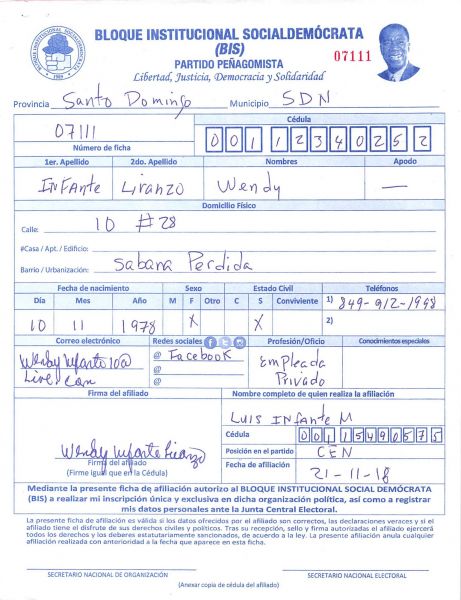 BLOQUE INSTITUCIONAL SOCIALDEMÓCRATA
(BIS)
07111
PARTIDO PEÑAGOMISTA
Libertad, Justicia, Democracia y Solidaridad
Provincia Santo Domingo Municipio SDN
07111
Número de ficha
Cédula
001 1234025 2
1er. Apellido 2do. Apellido Nombres Apodo
Infante Liranzo Wendy —
Domicilio Físico
Calle: 10 # 28
#Casa / Apt. / Edificio:
Barrio / Urbanización: Sabana Perdida
Fecha de nacimiento Sexo Estado Civil Teléfonos
Día Mes Año M F Otro C S Conviviente 1) 849-912-1998
10 11 1978 X X 2)
Correo electrónico Redes sociales Profesión/Oficio Conocimientos especiales
Wendy Infante 10@
Live.com
@ Facebook
@
@
Empleada
Privado
Firma del afiliado Nombre completo de quien realiza la afiliación
Luis Infante M
Cédula 001 1549057 5
Wendy Infante Liranzo
Firma del afiliado
(Firme igual que en la Cédula)
Posición en el partido CEN
Fecha de afiliación 21-11-18
Mediante la presente ficha de afiliación autorizo al BLOQUE INSTITUCIONAL SOCIAL DEMÓCRATA
(BIS) a realizar mi inscripción única y exclusiva en dicha organización política, así como a registrar
mis datos personales ante la Junta Central Electoral.
La presente ficha de afiliación es válida si los datos ofrecidos por el afiliado son correctos, las declaraciones veraces y si el
afiliado tiene el disfrute de sus derechos civiles y políticos. Tras su recepción, sello y firma autorizadas el afiliado ejercerá
todos los derechos y los deberes estatutariamente sancionados, de acuerdo a la ley. La presente afiliación anula cualquier
afiliación realizada con anterioridad a la fecha que aparece en esta ficha.
SECRETARIO NACIONAL DE ORGANIZACIÓN SECRETARIO NACIONAL ELECTORAL
(Anexar copia de cédula del afiliado)